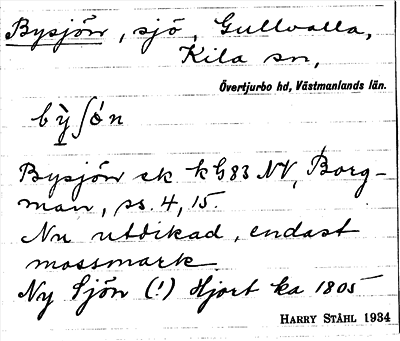 Bysjön, sjö, Gullvalla,
Kila sn,
Övertjurbo hd, Västmanlands län.
bỳʃón
Bysjön ek kG83 NV, Borg-
man, ss. 4, 15.
Nu utdikad, endast
mossmark
Ny Sjön (!) Hjort ka 1805
HARRY STÅHL 1934